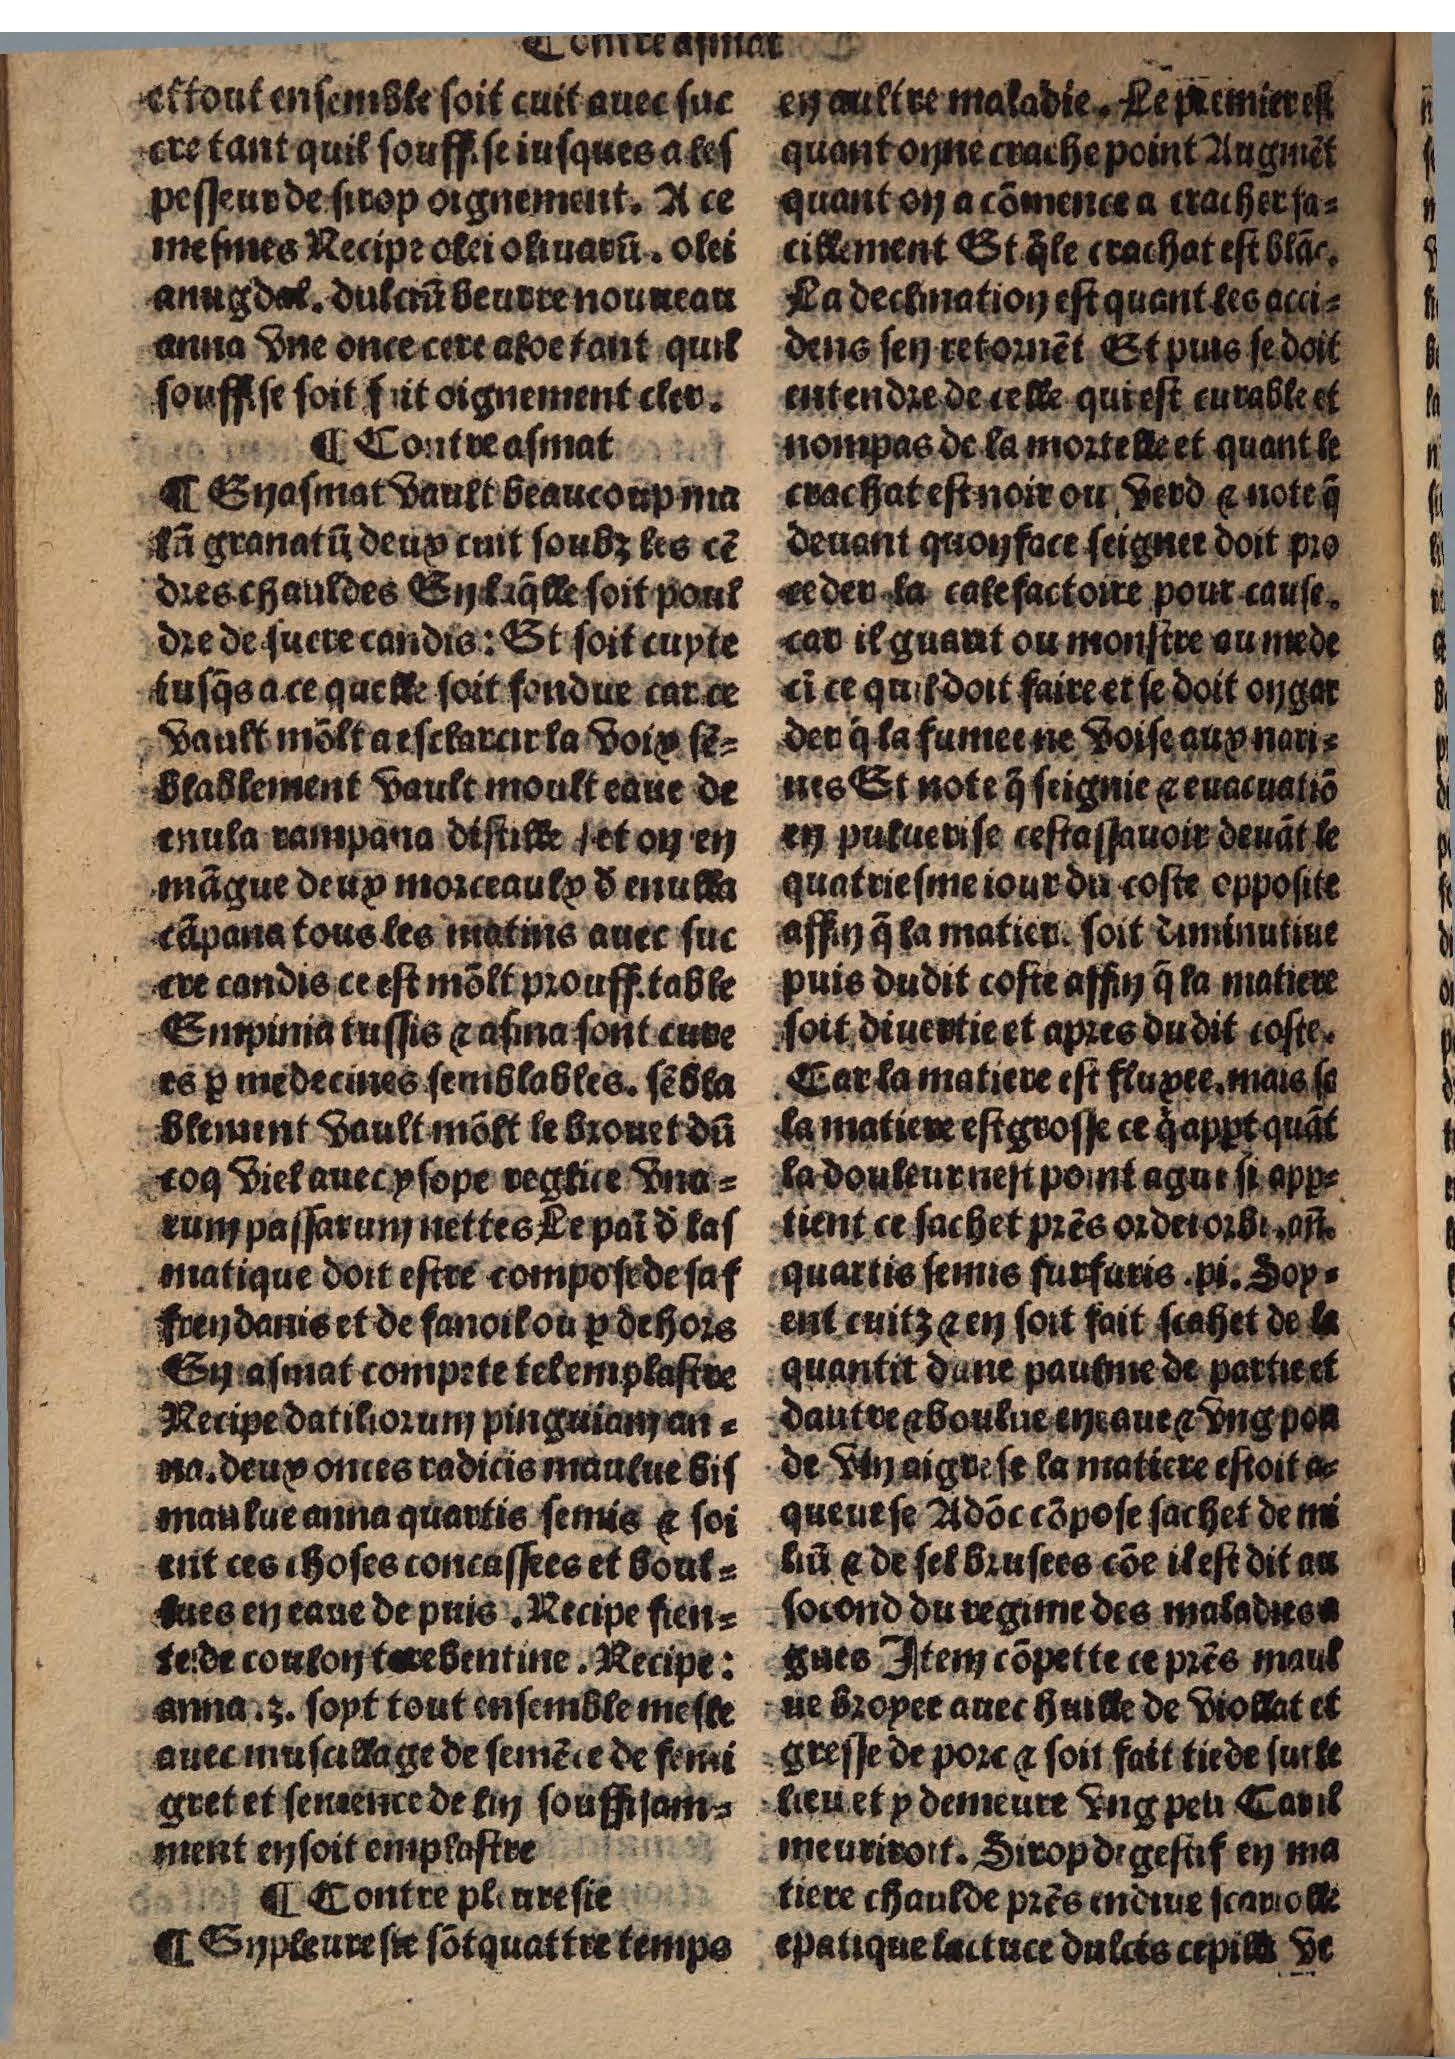 Contre asmat
et tout ensemble soit cuit auec suc
cre tant quil souffise iusques a les
pesseur de sirop oignement. A ce
mesmes Recipe olei oliuarū. olei
amigdal. dulciū beurre nouueau
anna vne once cere aloe tant quil
souffise soit fait oignement cler.
¶ Contre asmat
¶ En asmat vault beaucoup ma
lū granatū deux cuit soubz les cē
dres chauldes En laq̄lle soit poul
dre de sucre candis: Et soit cuyte
iusq̄s a ce quelle soit fondue car ce
vault mōlt a esclarcir la voix sē-
blablement vault moult eaue de
enula campana distille / et on en
māgue deux morceaulx d̄ enulla
cāpana tous les matins auec suc
cre candis ce est mōlt prouffitable
Empinia tussis ⁊ asma sont cure
es ꝑ medecines semblables. sēbla
blement vault mōlt le brouet dū
coq viel auec ysope reglice vua-
rum passarum nettes Le paī d̄ las
matique doit estre compose de saf
fren danis et de fanoil ou ꝑ dehors
En asmat compete tel emplastre
Recipe datiliorum pinguiam an-
na. deux onces radicis maulue bis
maulue anna quartis semis ⁊ soi
ent ces choses concassees et boul-
lues en eaue de puis. Recipe fien-
te de coulon terebentine. Recipe:
anna .ʒ. soyt tout ensemble mesle
auec muscillage de semēce de fenu
gret et semence de lin souffisam-
ment en soit emplastre
¶ Contre pleuresie
¶ En pleuresie sōt quattre temps
en aultre maladie. Le premier est
quant on ne crache point Augmēt
quant on a cōmence a cracher fa-
cillement Et q̄ le crachat est blāc.
La declination est quant les acci-
dens sen retornēt Et puis se doit
entendre de celle qui est curable et
nompas de la mortelle et quant le
crachat est noir ou verd ⁊ note q̄
deuant quon face seignee doit pro
ceder la calefactoire pour cause.
car il guarit ou monstre au mede
cī ce quil doit faire et se doit on gar
der q̄ la fumee ne voise aux nari-
nes Et note q̄ seignie ⁊ euacuatiō
en puluerise cestassauoir deuāt le
quatriesme iour du coste opposite
affin q̄ la matier. soit diminutiue
puis dudit coste affin q̄ la matiere
soit diuertie et apres dudit coste.
Car la matiere est fluxee. mais se
la matiere est grosse ce q̄ appꝑt quāt
la douleur nest point ague si app-
tient ce sachet prēs ordei orbi. an̄.
quartis semis furfuris .pi. Soy-
ent cuitz ⁊ en soit fait scahet de la
quantit dune paulme de partie et
dautre ⁊ boulue en eaue ⁊ vng pou
de vin aigre se la matiere estoit a-
queuese Adōc cōpose sachet de mi
liū ⁊ de sel brusees cōe il est dit au
socond du regime des maladies a
gues Item cōpette ce prēs maul
ue broyee auec huille de viollat et
gresse de porc ⁊ soit fait tiede sur le
lieu et y demeure vng peu Car il
meuriroit. Sirop digestif en ma
tiere chaulde prēs endiue scariolle
epatique lactuce dulcis cepille ve